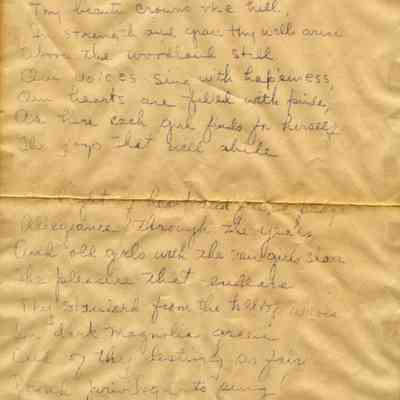 Thy beauty crowns the hill,
In strength and grace thy walls arise
Above the woodland still.
Our voices sing with happiness,
Our hearts are filled with pride,
As here each girl finds for herself
The joys that will abide
light of
Allegiance through the years,
And old girls with the new girls share
The pleasure that endears
Thy standard from the
In dark magnolia green
And of thy destiny so fair
privilege to sing